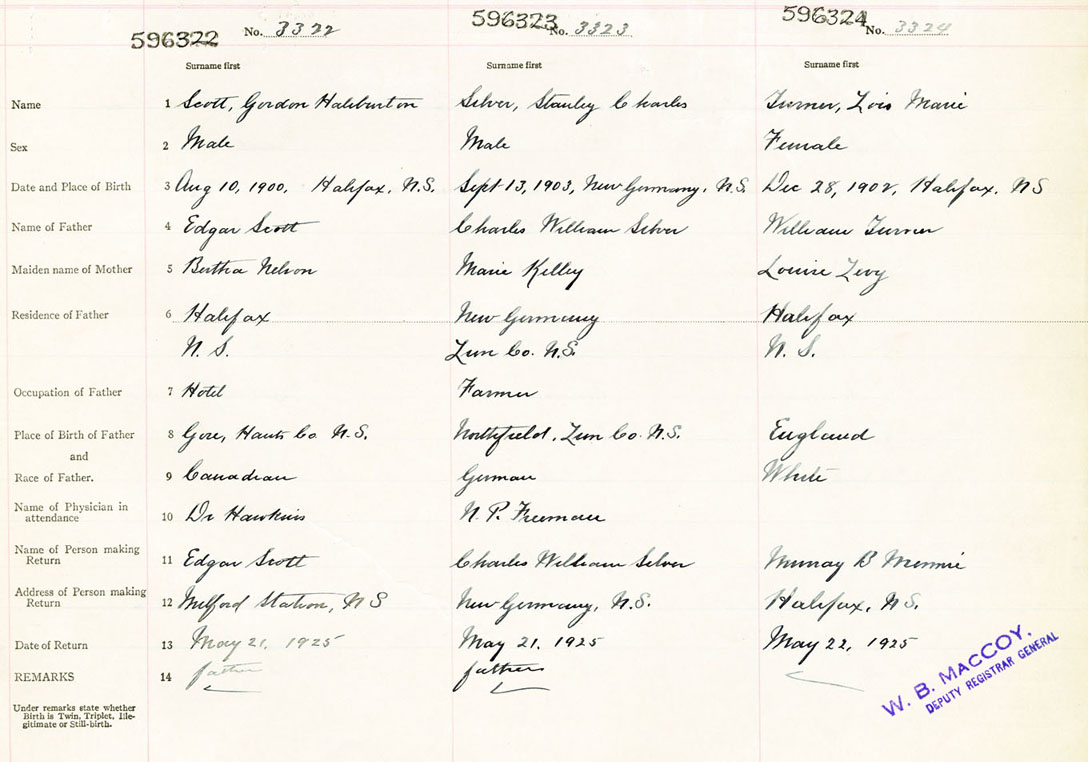 596322 No. 3322 596323 No. 3323 596324 No. 3324
Surname first Surname first Surname first
Name 1 Scott, Gordon Haliburton Silver, Stanley Charles Turner, Lois Marie
Sex 2 Male Male Female
Date and Place of Birth 3 Aug 10, 1900, Halifax, N.S. Sept 13, 1903, New Germany, N.S. Dec 28, 1902, Halifax, NS
Name of Father 4 Edgar Scott Charles William Silver William Turner
Maiden name of Mother 5 Bertha Nelson Marie Kelley Louise Levy
Residence of Father 6 Halifax New Germany Halifax
N. S. Lun Co. N.S. N. S.
Occupation of Father 7 Hotel Farmer
Place of Birth of Father 8 Gore, Hants Co N.S. Northfield, Lun Co. N.S. England
and
Race of Father. 9 Canadian German White
Name of Physician in
attendance 10 Dr Hawkins N. P. Freeman
Name of Person making
Return 11 Edgar Scott Charles William Silver Murray B
Address of Person making
Return 12 Milford Station, N S New Germany, N.S. Halifax, N.S.
Date of Return 13 May 21, 1925 May 21, 1925 May 22, 1925
REMARKS 14 father fathers
Under remarks state whether
Birth is Twin, Triplet, Ille-
gitimate or Still-birth.
W. B. MACCOY,
DEPUTY REGISTRAR GENERAL